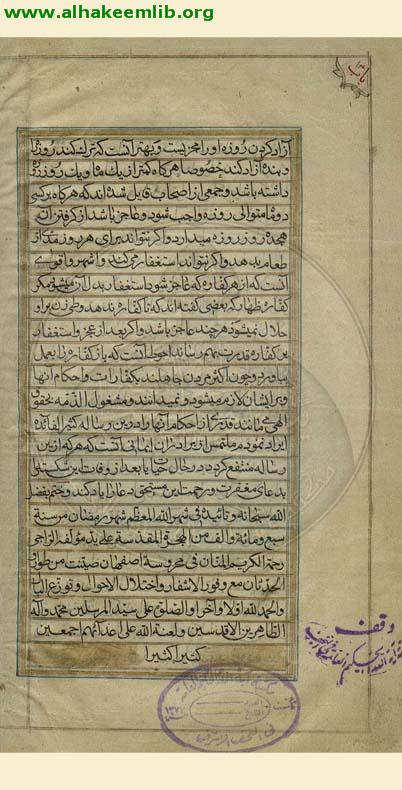 www.alhakeemlib.org
آزاد کردن روزه او را مجزیست و بهتر آنست که ترک نکند روزه را
و بنده آزاد کند خصوصا هر گاه کمتر از یک ماه و یک روز روزه
داشته باشد و جمعی از اصحاب قایل شده اند که هر گاه بر کسی
دو ماه متوالی روزه واجب شود و عاجز باشد از گرفتن آن
هجده روز روزه میدارد و اگر نتواند برای هر روز مدی از
طعام بدهد و اگر نتواند استغفار می کند و اشهر و اقوی
آنست که از هر کفاره که عاجز شود استغفار بدل آن میشود مگر
کفاره ظهار که بعضی گفته اند که تا کفاره ندهد وطی زن بر او
حلال نمیشود هر چند عاجز باشد و اگر بعد از عجز و استغفار
بر کفاره قدرت بهم رساند احوط آنست که باز کفاره را بعمل
بیاورد و چون اکثر مردم جاهلند بکفارات و احکام آنها
و بر ایشان لازم میشود و نمیدانند و مشغول الذمه بحقوق
الهی می مانند قدری از احکام آنها را در این رساله کثیر الفایده
ایراد نمودم ملتمس از برادران ایمانی آنست که هر که از این
رساله منتفع گردد در حال حیات یا بعد از وفات این شکسته را
بدعای مغفرت و رحمت این مستحق دعا را یاد کند و ختم بفضل
الله سبحانه و تائیده فی شهر الله المعظم شهر رمضان من سنة
سبع و مائة و الف من الهجرة المقدسة علی ید مؤلفه الراجی
رحمة الکریم المنان فی محروسة اصفهان صینت من طوارق
الحدثان مع وفور الاشغال و اختلال الاحوال و توزع البال
والحمد لله اولا و آخرا و الصلوة علی سید المرسلین محمد و آله
الطاهرین الاقدسین و لعنة الله علی اعدائهم اجمعین
کثیرا کثیرا
وقف